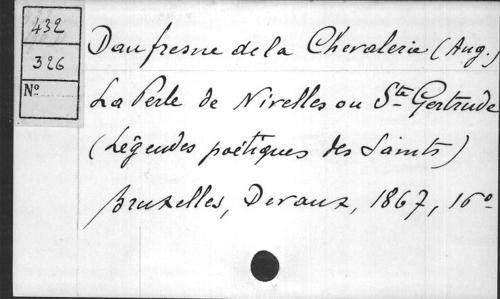 432
326
Nº
Daufresne de la Chevalerie (Aug.)
La Perle de Nivelles ou Ste Gertrude
(Légendes poétiques des Saints)
Bruxelles, Devaux, 1867, 16º